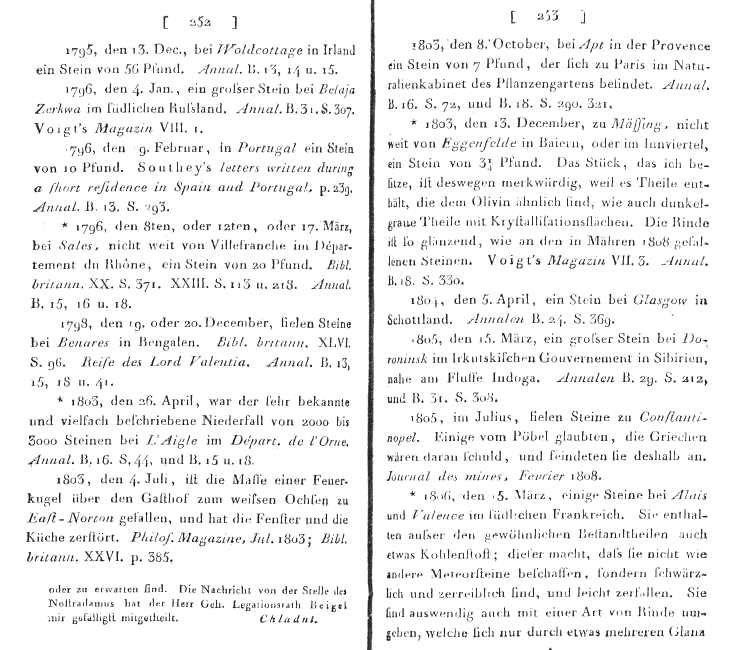 [ 252 ]
1795, den 13. Dec., bei Woldcottage in Irland
ein Stein von 56 Pfund. Annal. B. 13, 14 u. 15.
1796, den 4. Jan., ein groſser Stein bei Belaja
Zerkwa im ſüdlichen Ruſsland. Annal. B. 31. S. 307.
Voigt's Magazin VIII. 1.
1796, den 19. Februar, in Portugal ein Stein
von 10 Pfund. Southey's letters written during
a ſhort reſidence in Spain and Portugal, p. 239.
Annal. B. 13. S. 293.
* 1796, den 8ten, oder 12ten, oder 17. März,
bei Sales, nicht weit von Villefranche im Dépar-
tement du Rhône, ein Stein von 20 Pfund. Bibl.
britann. XX. S. 371. XXIII. S. 113 u. 218. Annal.
B. 15, 16 u. 18.
1798, den 19. oder 20. December, fielen Steine
bei Benares in Bengalen. Bibl. britann. XLVI.
S. 96. Reiſe des Lord Valentia. Annal. B. 13,
15, 18 u. 41.
* 1803, den 26. April, war der ſehr bekannte
und vielfach beſchriebene Niederfall von 2000 bis
3000 Steinen bei L'Aigle im Départ. de l'Orne.
Annal. B. 16. S. 44, und B. 15 u. 18.
1803, den 4. Juli, iſt die Maſſe einer Feuer-
kugel über den Gaſthof zum weiſsen Ochſen zu
Eaſt-Norton gefallen, und hat die Fenſter und die
Küche zerſtört. Philoſ. Magazine, Jul. 1803; Bibl.
britann. XXVI. p. 385.
oder zu erwarten ſind. Die Nachricht von der Stelle des
Noſtradamus hat der Herr Geh. Legationsrath Beigel
mir gefälligſt mitgetheilt. Chladni.
[ 253 ]
1803, den 8. October, bei Apt in der Provence
ein Stein von 7 Pfund, der ſich zu Paris im Natu-
ralienkabinet des Pflanzengartens befindet. Annal.
B. 16. S. 72, und B. 18. S. 290. 321.
* 1803, den 13. December, zu Mäſſing, nicht
weit von Eggenfelde in Baiern, oder im Innviertel,
ein Stein von 3¼ Pfund. Das Stück, das ich be-
ſitze, iſt deswegen merkwürdig, weil es Theile ent-
hält, die dem Olivin ähnlich ſind, wie auch dunkel-
graue Theile mit Kryſtalliſationsflächen. Die Rinde
iſt ſo glänzend, wie an den in Mähren 1808 gefal-
lenen Steinen. Voigt's Magazin VII. 3. Annal.
B. 18. S. 330.
1804, den 5. April, ein Stein bei Glasgow in
Schottland. Annalen B. 24. S. 369.
1805, den 15. März, ein groſser Stein bei Do-
roninsk im Irkutskiſchen Gouvernement in Sibirien,
nahe am Fluſſe Indoga. Annalen B. 29. S. 212,
und B. 31. S. 308.
1805, im Julius, fielen Steine zu Conſtanti-
nopel. Einige vom Pöbel glaubten, die Griechen
wären daran ſchuld, und feindeten ſie deshalb an.
Journal des mines, Fevrier 1808.
* 1806, den 15. März, einige Steine bei Alais
und Valence im ſüdlichen Frankreich. Sie enthal-
ten auſser den gewöhnlichen Beſtandtheilen auch
etwas Kohlenſtoff; dieſer macht, daſs ſie nicht wie
andere Meteorſteine beſchaffen, ſondern ſchwärz-
lich und zerreiblich ſind, und leicht zerfallen. Sie
ſind auswendig auch mit einer Art von Rinde um-
geben, welche ſich nur durch etwas mehreren Glanz